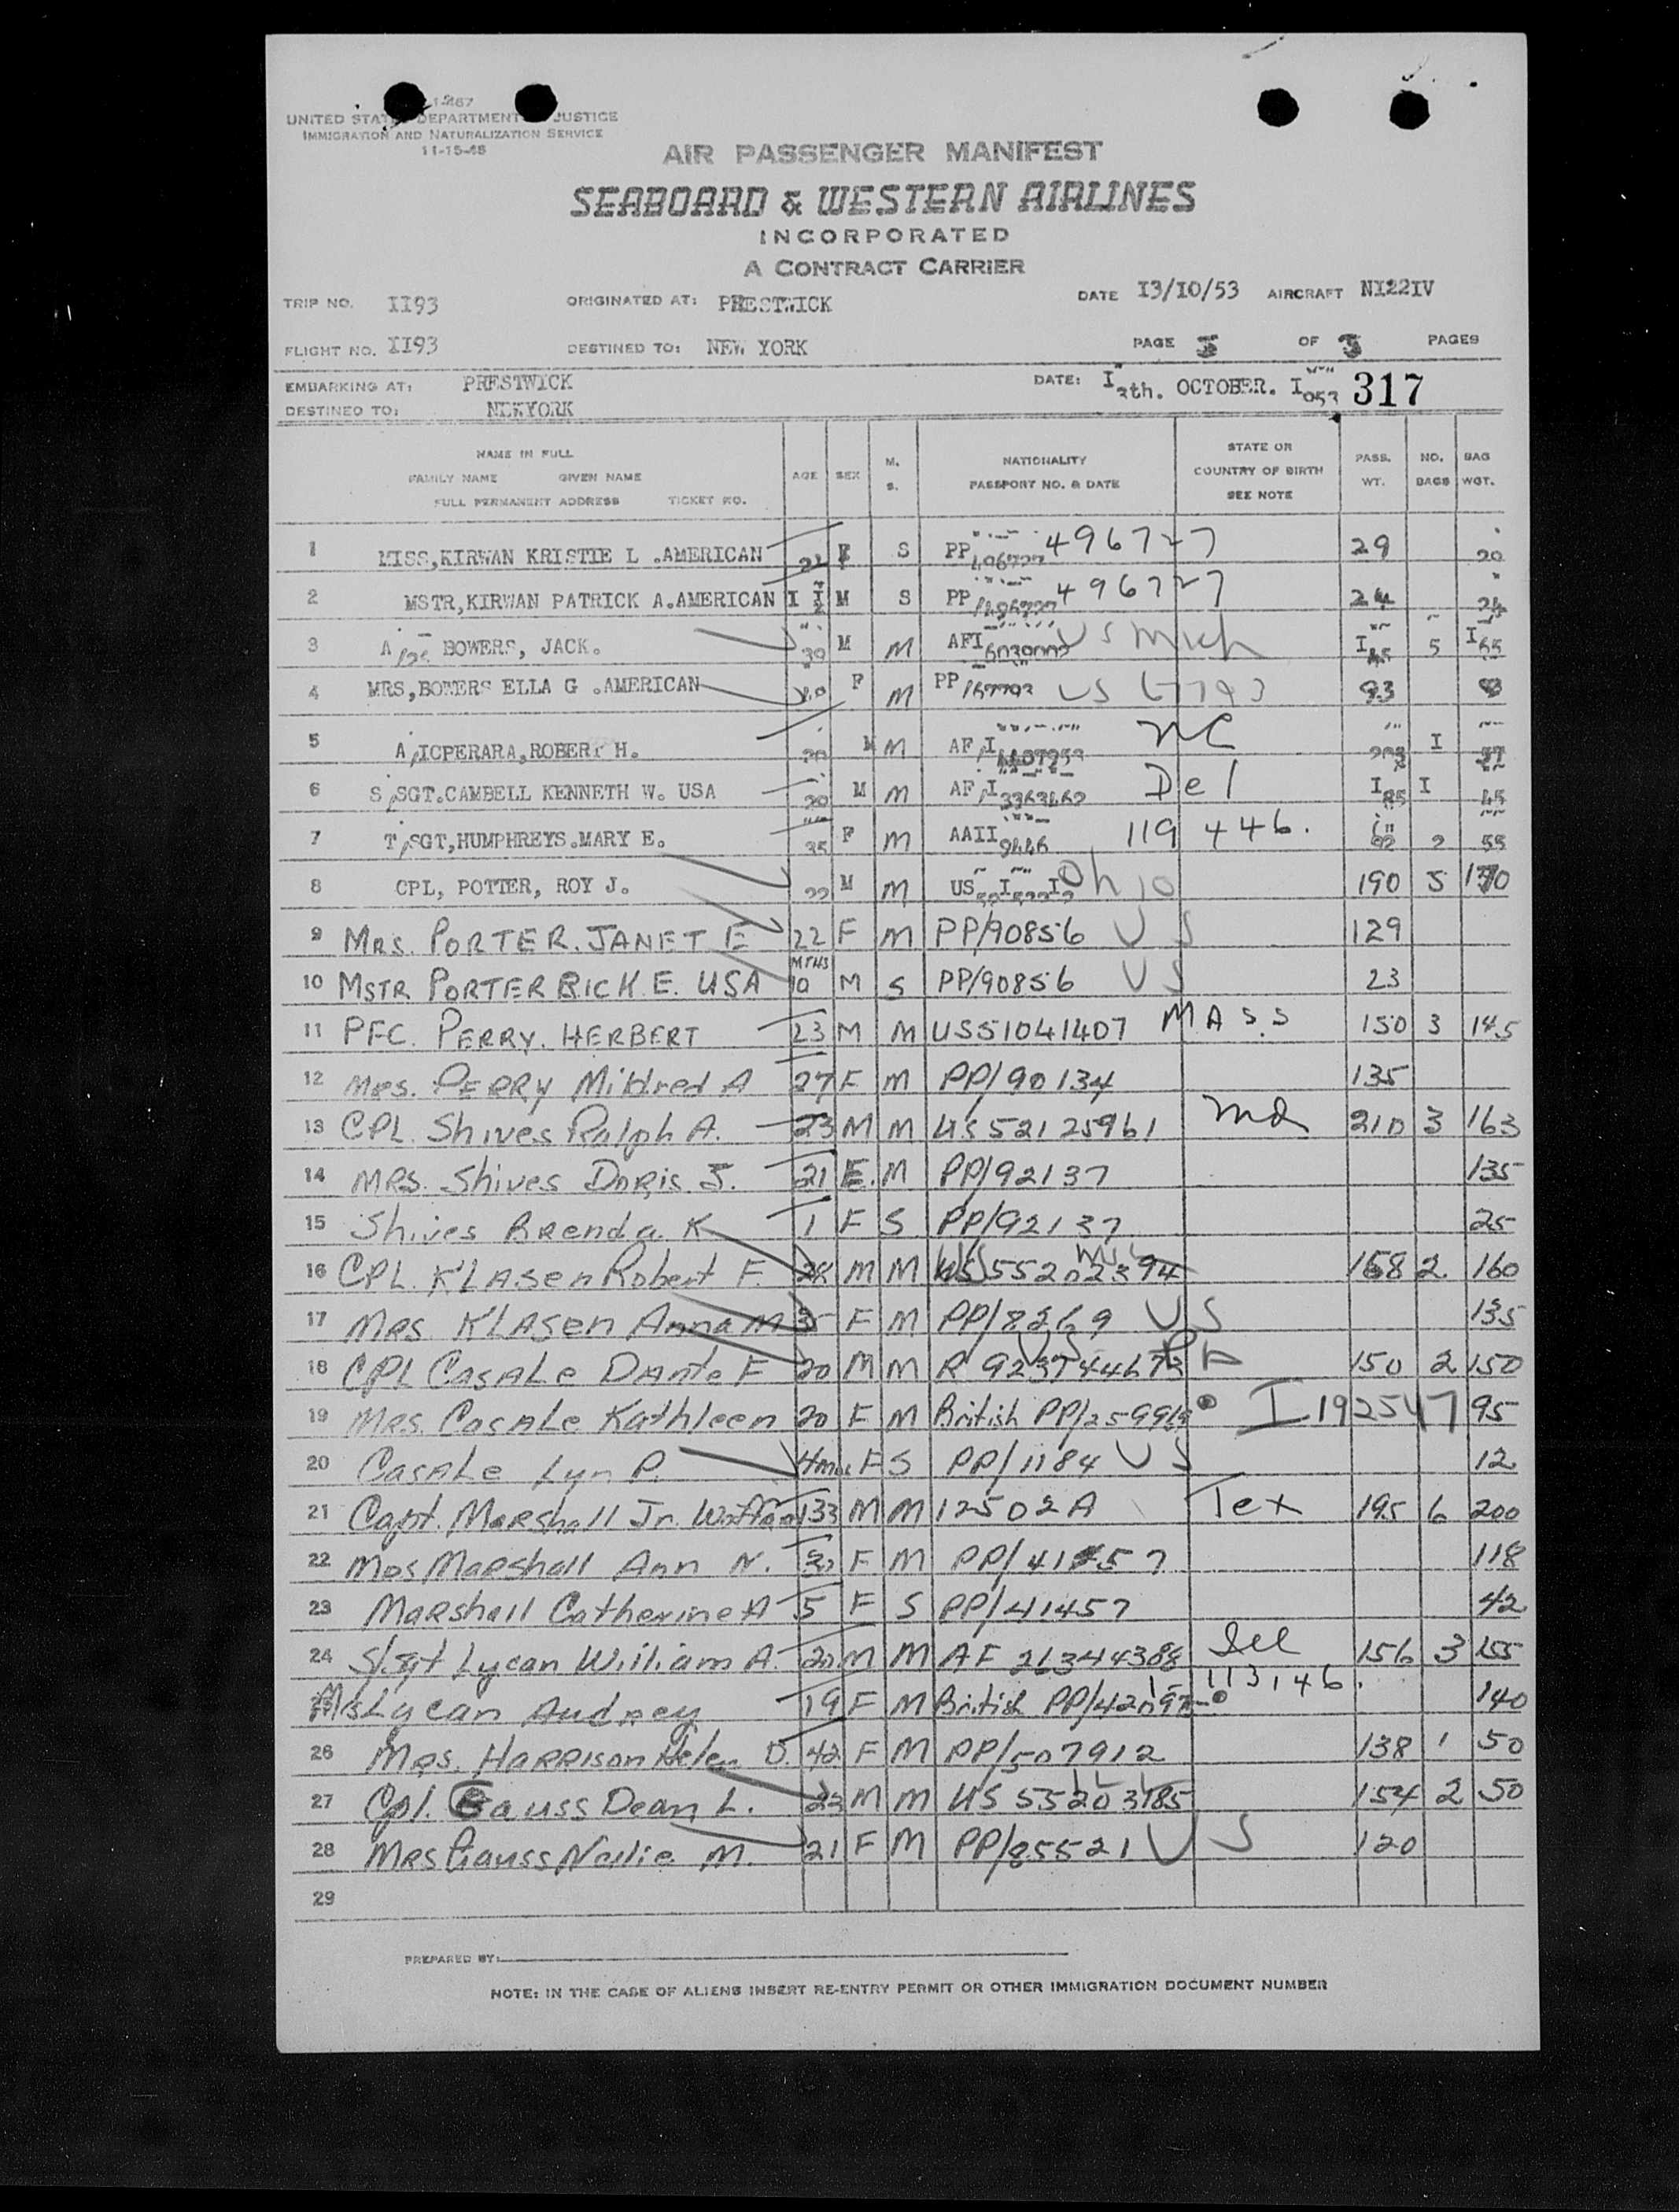 1-267
UNITED STATES DEPARTMENT JUSTICE
IMMIGRATION AND NATURALIZATION SERVICE
11-15-48
AIR PASSENGER MANIFEST
SEABOARD & WESTERN AIRLINES
INCORPORATED
A CONTRACT CARRIER
TRIP NO. II93 ORIGINATED AT: PRESTWICK DATE I3/10/53 AIRCRAFT NI22IV
FLIGHT NO. II93 DESTINED TO: NEW YORK PAGE OF PAGES
EMBARKING AT: PRESTWICK DATE: I3th. OCTOBER. I953 317
DESTINED TO: NEWYORK
NAME IN FULL
FAMILY NAME GIVEN NAME
FULL PERMANENT ADDRESS TICKET NO.
AGE SEX M. S. NATIONALITY PASSPORT NO. & DATE STATE OR COUNTRY OF BIRTH SEE NOTE PASS. WT. NO. BAGS BAG WGT.
1 MISS,KIRWAN KRISTIE L .AMERICAN F S PP 496727 29 20
2 MSTR,KIRWAN PATRICK A.AMERICAN I M S PP 496727 24 24
3 A BOWERS, JACK. 30 M M AFI6030002 US Mich 5
4 MRS,BOWERS ELLA G .AMERICAN F M PP US 67793 93
5 A,ICPERARA,ROBERT H. M M AF,I NC I
6 S,SGT.CAMBELL KENNETH W. USA M M AF,I Del I85 I 45
7 T,SGT,HUMPHREYS.MARY E. 35 F M AAII9446 119 446. 2 55
8 CPL, POTTER, ROY J. 22 M M US Ohio 190 5 170
9 MRS. PORTER. JANET E 22 F M PP/90856 US 129
10 MSTR PORTER RICK. E. USA 10 MTHS M S PP/90856 US 23
11 PFC. PERRY. HERBERT 23 M M US51041407 MASS 150 3 145
12 MRS. PERRY Mildred A 27 F M PP/90134 135
13 CPL. Shives Ralph A. 23 M M US 52125961 Md 210 3 163
14 MRS. Shives Doris. J. 21 F. M PP/92137 135
15 Shives Brenda K 1 F S PP/92137 25
16 CPL. KLASen Robert F. 28 M M US 55202394 168 2 160
17 MRS KLASen Anna M F M PP/8269 US 135
18 CPL CASALe DAnte F 20 M M R PA 150 2 150
19 MRS. CASALe Kathleen 20 F M British PP/ I 192547 95
20 CASALe Lyn P. F S PP/1184 US 12
21 Capt. Marshall Jr. 33 M M 12502A Tex 195 6 200
22 MRS MaRshall Ann N. F M PP/41457 118
23 MaRshall Catherine A 5 F S PP/41457 42
24 S/Sgt Lycan William A. 20 M M AF 21344388 Ill 156 3 155
MRS Lycan Audrey 19 F M British PP/ 113146. 140
26 MRS. HARRISON Helen D. 42 F M PP/507912 138 1 50
27 Cpl. Gauss Dean L. 23 M M US 55203185 154 2 50
28 MRS Gauss Nellie M. 21 F M PP/85521 US 120
29
PREPARED BY:
NOTE: IN THE CASE OF ALIENS INSERT RE-ENTRY PERMIT OR OTHER IMMIGRATION DOCUMENT NUMBER